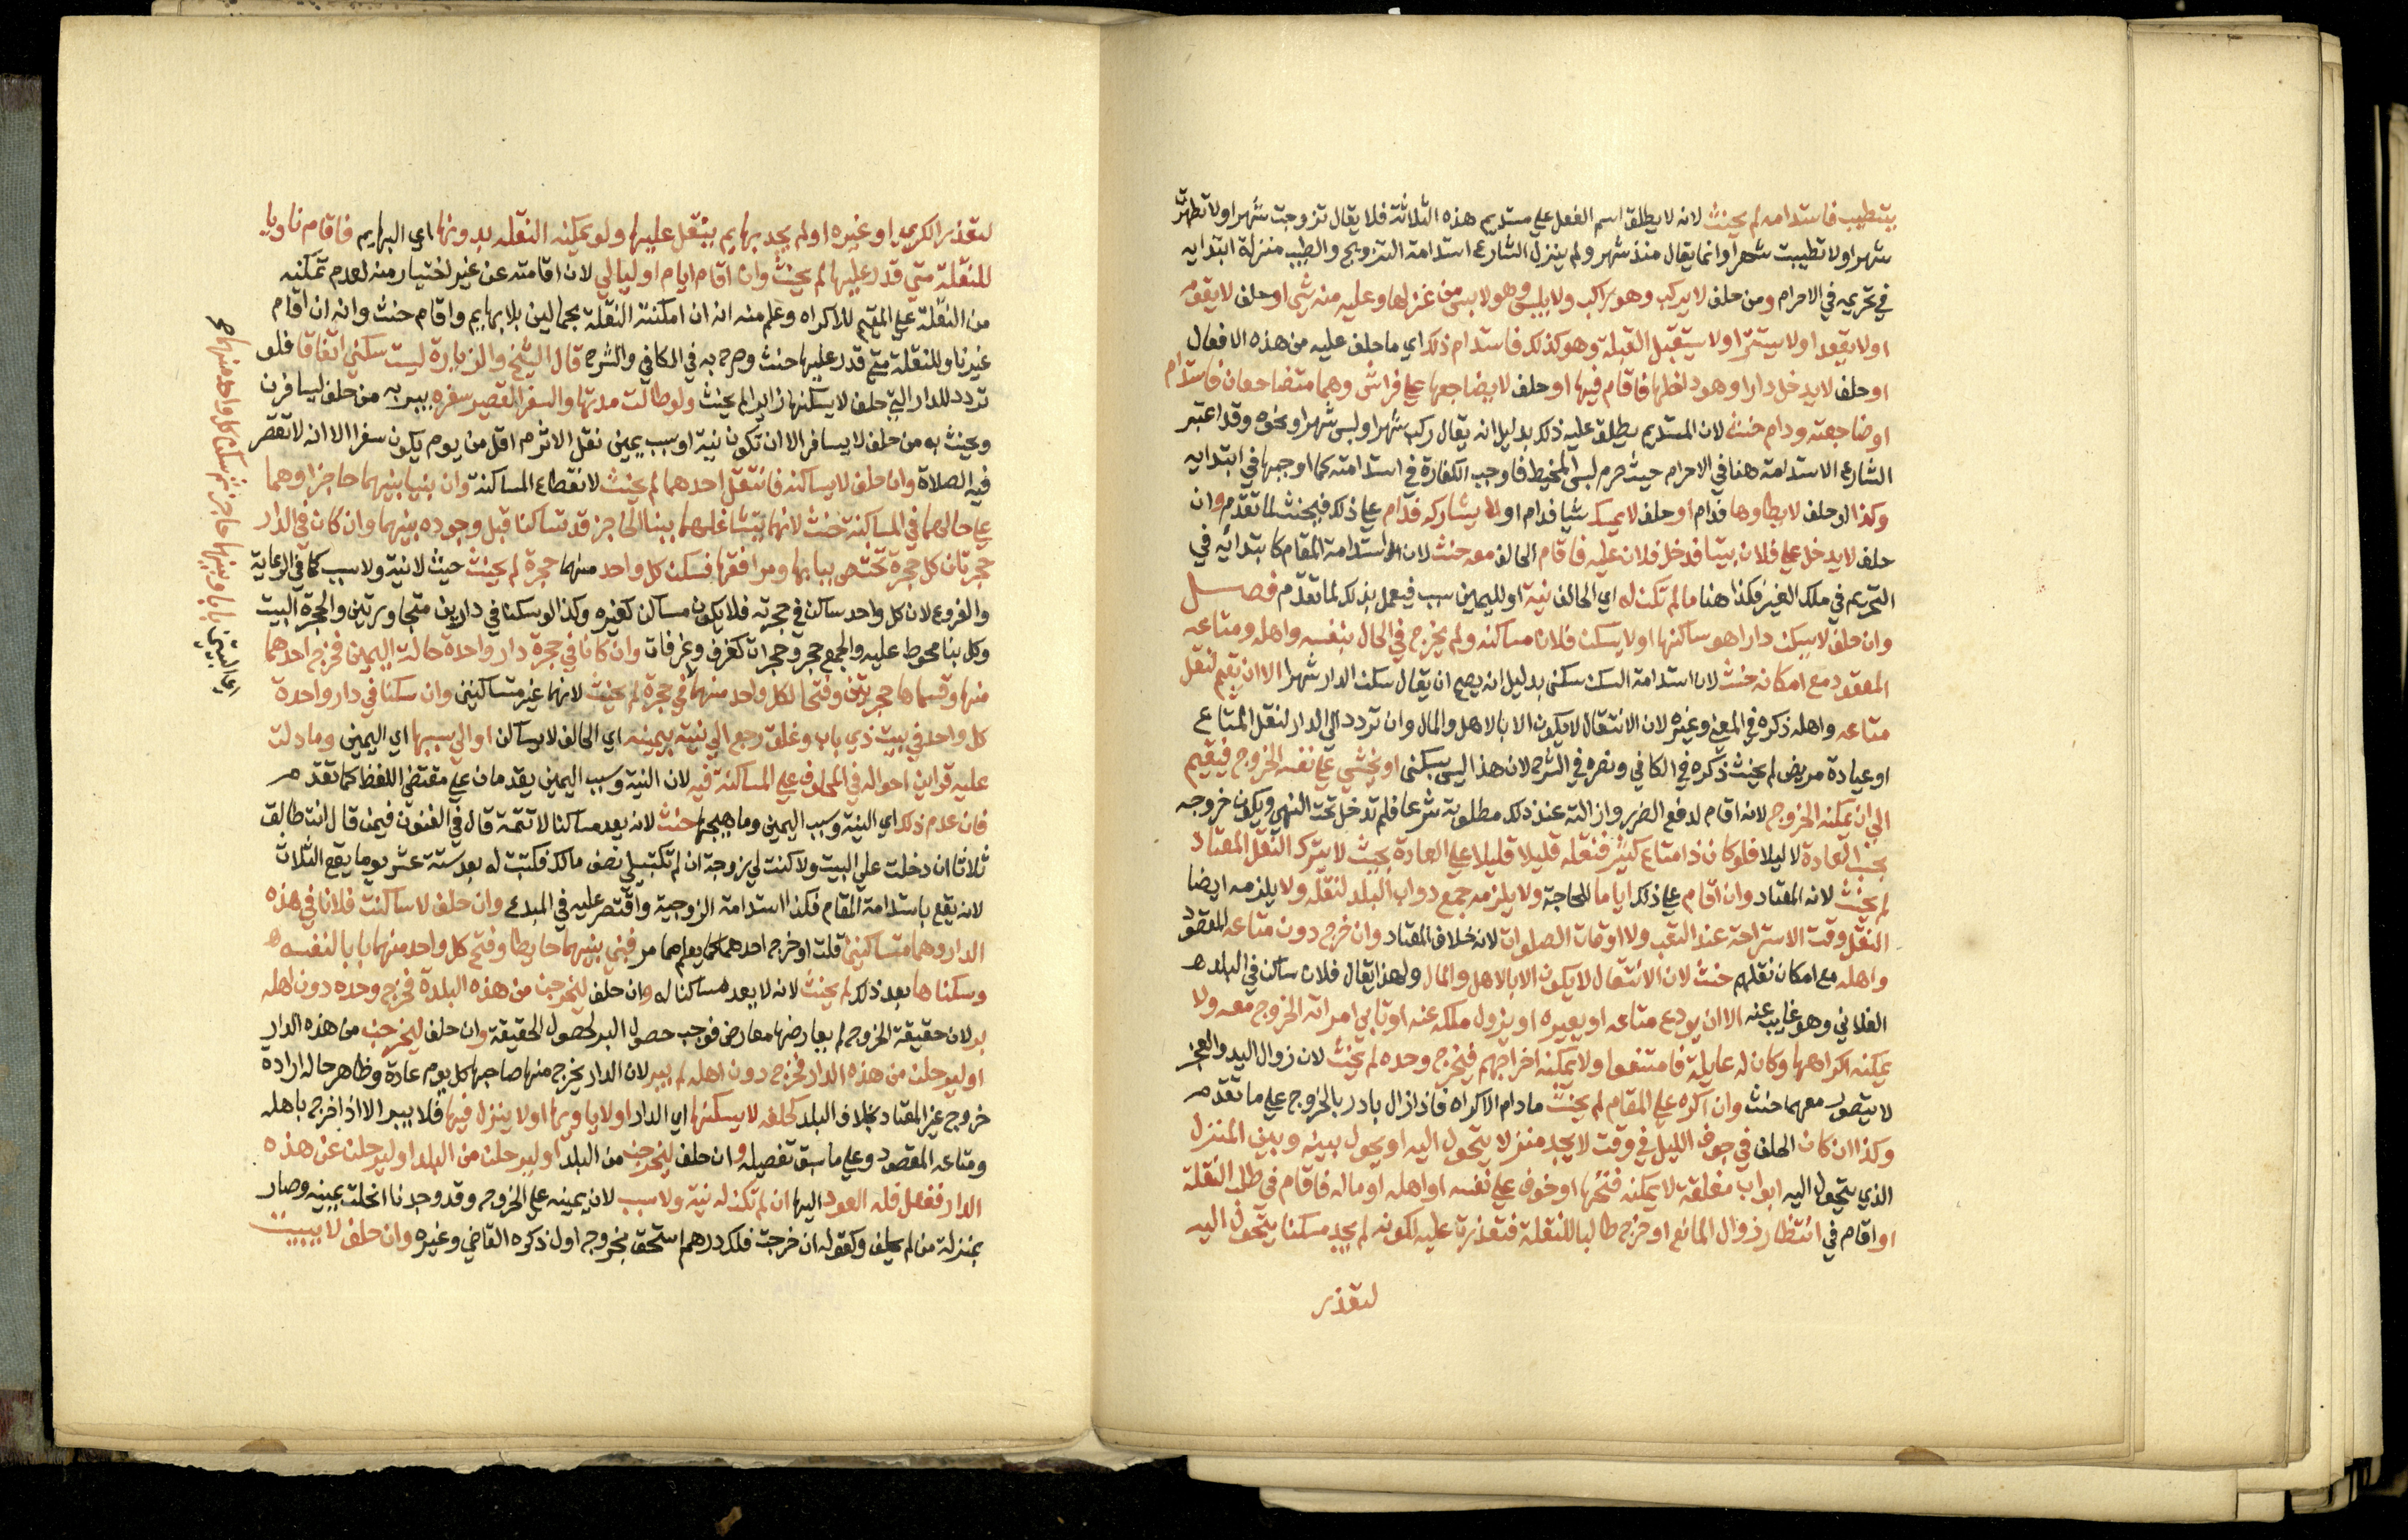 يتطيب فاستدامه لم يحنث لانه لا يطلق اسم الفعل على مستديم هذه الثلاثة فلا يقال تزوجت شهرا ولا تطهرت
شهرا ولا تطيبت شهرا وانما يقال منذ شهر ولم ينزل الشارع استدامة التزويج والطيب منزلة ابتدايه
في تحريمه في الاحرام ومن حلف لا يركب وهو راكب ولا يلبس وهو لابس من غزلها وعليه منه شي او حلف لا يقوم
او لا يقعد او لا يستتر او لا يستقبل القبلة وهو كذلك فاستدام ذلك اي ما حلف عليه من هذه الافعال
او حلف لا يدخل دارا وهو داخلها فاقام فيها او حلف لا يضاجعها على فراش وهما متضاجعان فاستدام
او ضاجعته ودام حنث لان المستديم يطلق عليه ذلك بدليل انه يقال ركب شهرا ولبس شهرا ونحوه وقد اعتبر
الشارع الاستدامة هنا في الاحرام حيث حرم لبس المخيط فاوجب الكفارة في استدامته كما اوجبها في ابتدايه
وكذا لو حلف لا يطاوها فدام او حلف لا يمسك شيا فدام او لا يشاركه فدام على ذلك فيحنث لما تقدم وان
حلف لا يدخل على فلان بيتا فدخل فلان عليه فاقام الحالف معه حنث لان استدامة المقام كابتدائه في
التحريم في ملك الغير فكذا هنا ما لم تكن له اي الحالف نية او لليمين سبب فيعمل بذلك لما تقدم فصل
وان حلف لا يسكن دارا هو ساكنها او لا يساكن فلانا وهو مساكنه ولم يخرج في الحال بنفسه واهله ومتاعه
المقصود مع امكانه حنث لان استدامة السكن سكنى بدليل انه يصح ان يقال سكن الدار شهرا الا ان يقيم لنقل
متاعه واهله ذكره في المغني وغيره لان الانتقال لا يكون الا بالاهل والمال وان تردد الى الدار لنقل المتاع
او عيادة مريض لم يحنث ذكره في الكافي ونصره في الشرح لان هذا ليس بسكنى او يخشى على نفسه الخروج فيقيم
الى ان يمكنه الخروج لانه اقام لدفع الضرر وازالته عند ذلك مطلوبة شرعا فلم تدخل تحت النهي ويكون خروجه
بحسب العادة لا ليلا فلو كان ذا متاع كثير فنقله قليلا قليلا على العادة بحيث لا يترك النقل المعتاد
لم يحنث لانه المعتاد وان اقام على ذلك اياما للحاجة ولا يلزمه جمع دواب البلد لنقله ولا يلزمه ايضا
النقل وقت الاستراحة عند التعب ولا اوقات الصلوات لانه خلاف المعتاد وان خرج دون متاعه المقصود
واهله مع امكان نقلهم حنث لان الانتقال لا يكون الا بالاهل والمال ولهذا يقال فلان ساكن في البلد
الفلاني وهو غايب عنه الا ان يودع متاعه او يعيره او يزول ملكه عنه او تابى امراته الخروج معه ولا
يمكنه اكراهها وكان له عايلة فامتنعوا ولا يمكنه اخراجهم فيخرج وحده لم يحنث لان زوال اليد والعجز
لا يتصور معهما حنث وان اكره على المقام لم يحنث ما دام الاكراه فاذا زال بادر بالخروج على ما تقدم
وكذا ان كان الحلف في جوف الليل في وقت لا يجد منزلا يتحول اليه او يحول بينه وبين المنزل
الذي يتحول اليه ابواب مغلقة لا يمكنه فتحها او خوف على نفسه او اهله او ماله فاقام في طلب النقلة
او اقام في انتظار زوال المانع او خرج طالبا للنقلة فتعذرت عليه لكونه لم يجد مسكنا يتحول اليه
لتعذر
لتعذر الكري او غيره او لم يجد بهايم ينتقل عليها ولو يمكنه النقلة بدونها اي البهايم فاقام ناويا
للنقلة متى قدر عليها لم يحنث وان اقام ايام او ليالي لان اقامته عن غير اختيار منه لعدم تمكنه
من النقلة على المقيم للاكراه وعلم منه انه ان امكنته النقلة بحمالين بلا بهايم واقام حنث وانه ان اقام
غير ناو للنقلة متى قدر عليها حنث وصرح به في الكافي والشرح قال الشيخ والزيارة ليست سكنى اتفاقا فلو
تردد للدار التي حلف لا يسكنها زايرا لم يحنث ولو طالت مدتها والسفر القصير سفر يبر به من حلف ليسافرن
ويحنث به من حلف لا يسافر الا ان تكون نية او سبب يمين نقل الاثرم اقل من يوم يكون سفرا الا انه لا تقصر
فيه الصلاة وان حلف لا يساكنه فانتقل احدهما لم يحنث لانقطاع المساكنة وان بنيا بينهما حاجزا وهما
على حالهما في المساكنة حنث لانهما بتشاغلهما ببنا الحاجز قد تساكنا قبل وجوده بينهما وان كان في الدار
حجرتان كل حجرة تختص ببابها ومرافقها فسكن كل واحد منهما حجرة لم يحنث حيث لا نية ولا سبب كما في الرعاية
والفروع لان كل واحد ساكن في حجرته فلا يكون مساكن لغيره وكذا لو سكنا في دارين متجاورتين والحجرة البيت
وكل بنا محوط عليه والجمع حجر وحجرات كغرف وغرفات وان كانا في حجرة دار واحدة حالة اليمين فخرج احدهما
منها وقسماها حجرتين وفتحا لكل واحد منهما في حجرة لم يحنث لانهما غير متساكنين وان سكنا في دار واحدة
كل واحد في بيت ذي باب وغلق رجع الى نية بيمينه اي الحالف لا يساكن او الى سببها اي اليمين وما دلت
عليه قراين احواله في المحلوف على المساكنة فيه لان النية وسبب اليمين يقدمان على مقتضى اللفظ كما تقدم
فان عدم ذلك اي النية وسبب اليمين وما هيجها حنث لانه يعد مساكنا لا تتمة قال في الفنون فيمن قال انت طالق
ثلاثا ان دخلت علي البيت ولا كنت لي زوجة ان لم تكتبي لي نصف مالك فكتبت له بعد ستة عشر يوما يقع الثلاث
لانه يقع باستدامة المقام فكذا استدامة الزوجية واقتصر عليه في المبدع وان حلف لا ساكنت فلانا في هذه
الدار وهما متساكنين قلت او خرج احدهما كما يعلم مما مر فبني بينهما حايطا وفتح كل واحد منهما بابا لنفسه
وسكناها بعد ذلك لم يحنث لانه لا يعد مساكنا له وان حلف ليخرجن من هذه البلدة فخرج وحده دون اهله
بر لان حقيقة الخروج لم يعارضها معارض فوجب حصول البر لحصول الحقيقة وان حلف ليخرجن من هذه الدار
او ليرحلن من هذه الدار فخرج دون اهله لم يبر لان الدار يخرج منها صاحبها كل يوم عادة وظاهر حاله ارادة
خروج غير المعتاد بخلاف البلد كحلفه لا يسكنها اي الدار او لا ياويها او لا ينزل فيها فلا يبر الا اذا خرج باهله
ومتاعه المقصود وعلى ما سبق تفصيله وان حلف ليخرجن من البلد او ليرحلن من البلد او ليرحلن عن هذه
الدار ففعل فله العود اليها ان لم تكن له نية ولا سبب لان يمينه على الخروج وقد وجد فانحلت يمينه وصار
بمنزلة من لم يحلف وكقوله ان خرجت فلك درهم استحق بخروجه اول ذكره القاضي وغيره وان حلف لا يبيت